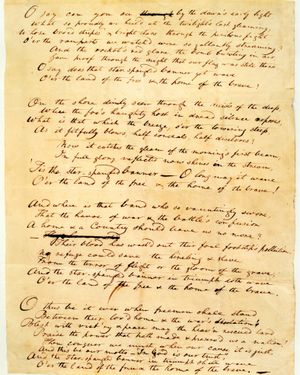 O say can you see by the dawn's early light
What so proudly we hail'd at the twilight's last gleaming,
Whose broad stripes & bright stars through the perilous fight
O'er the ramparts we watch'd, were so gallantly streaming?
And the rocket's red glare, the bomb bursting in air,
Gave proof through the night that our flag was still there,
O say does that star-spangled banner yet wave
O'er the land of the free & the home of the brave?
On the shore dimly seen through the mists of the deep,
Where the foe's haughty host in dread silence reposes,
What is that which the breeze, o'er the towering steep,
As it fitfully blows, half conceals, half discloses?
Now it catches the gleam of the morning's first beam,
In full glory reflected now shines in the stream,
'Tis the star-spangled banner — O long may it wave
O'er the land of the free & the home of the brave!
And where is that band who so vauntingly swore,
That the havoc of war & the battle's confusion
A home & a Country should leave us no more?
Their blood has wash'd out their foul footstep's pollution.
No refuge could save the hireling & slave
From the terror of flight or the gloom of the grave,
And the star-spangled banner in triumph doth wave
O'er the land of the free & the home of the brave.
O thus be it ever when freemen shall stand
Between their lov'd home & the war's desolation!
Blest with vict'ry & peace may the heav'n rescued land
Praise the power that hath made & preserv'd us a nation!
Then conquer we must, when our cause it is just,
And this be our motto — "In God is our trust,"
And the star-spangled banner in triumph shall wave
O'er the land of the free & the home of the brave. —